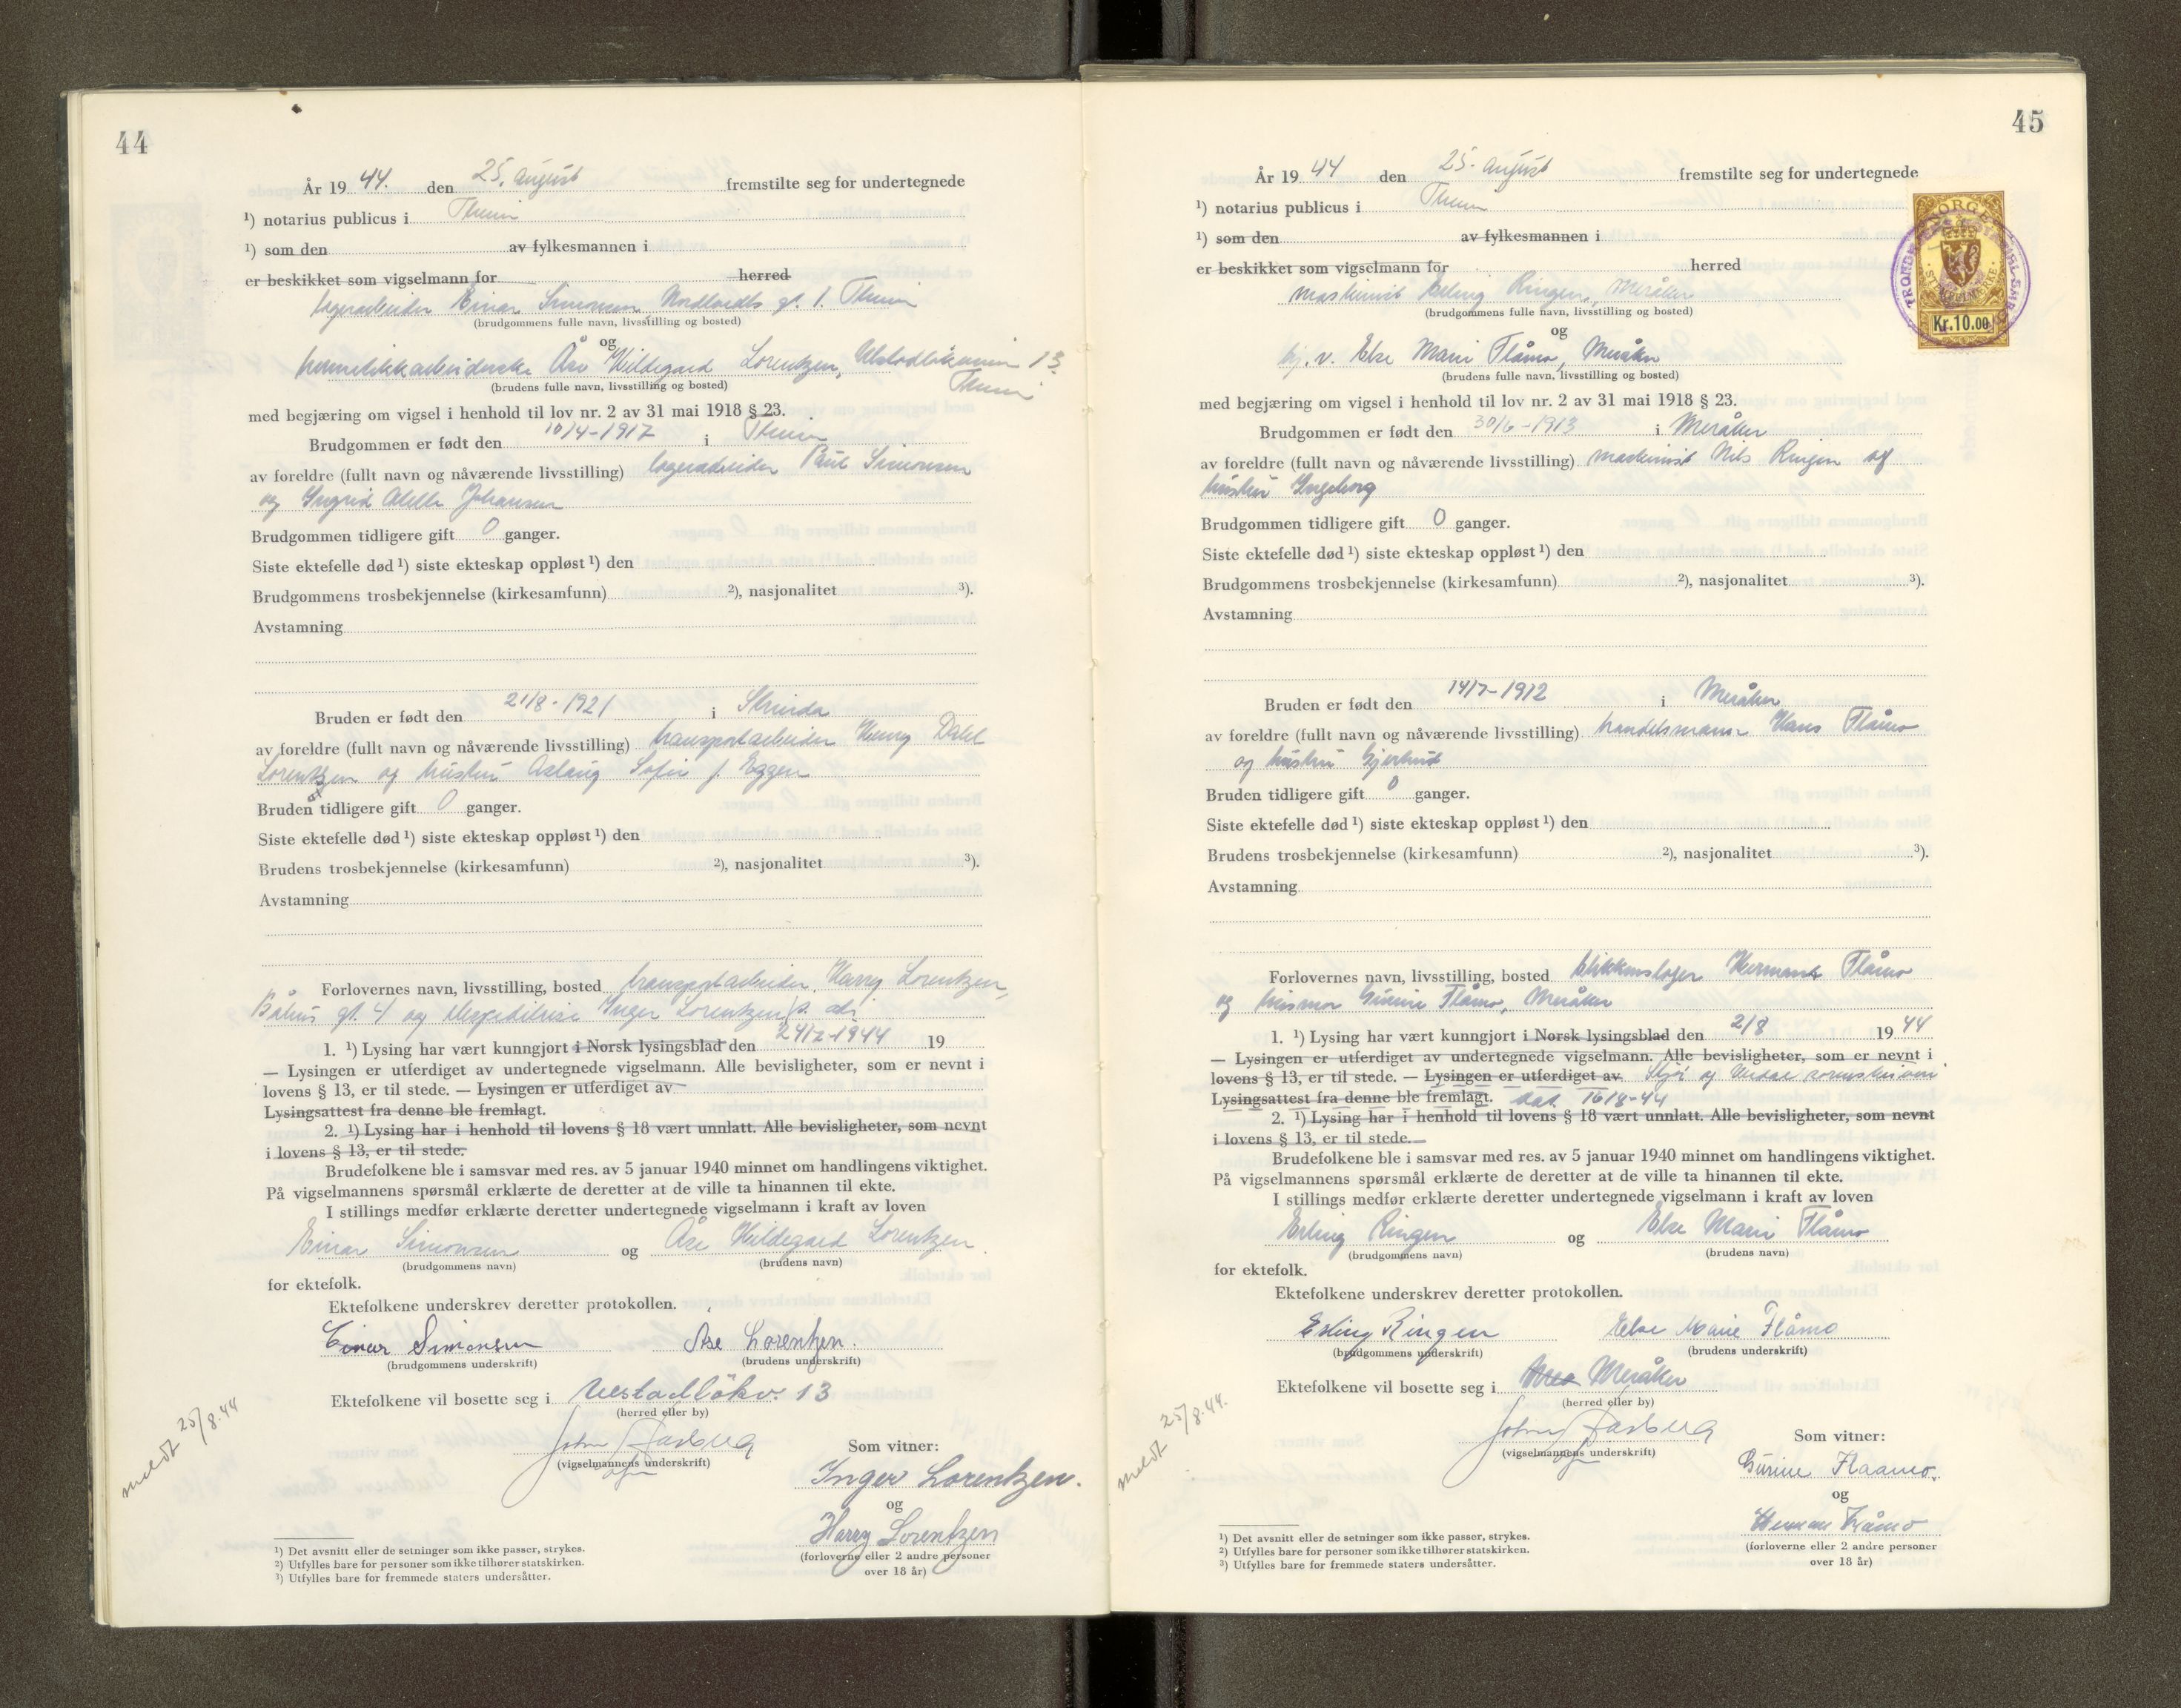 44
År 19 44. den 25. august fremstilte seg for undertegnede
1) notarius publicus i Thum
1) som den av fylkesmannen i
er beskikket som vigselmann for herred
lagerarbeider Einar Simonsen gt. 1. Thum
(brudgommens fulle navn, livsstilling og bosted)
og
hermetikkarbeiderske Åse Hildegard Lorentzen, 13
Thum
(brudens fulle navn, livsstilling og bosted)
med begjæring om vigsel i henhold til lov nr. 2 av 31 mai 1918 § 23.
Brudgommen er født den 10/4-1917 i Thum
av foreldre (fullt navn og nåværende livsstilling) lagerarbeider Paul Simonsen
og Ingrid Johansen
Brudgommen tidligere gift 0 ganger.
Siste ektefelle død 1) siste ekteskap oppløst 1) den
Brudgommens trosbekjennelse (kirkesamfunn) 2), nasjonalitet 3).
Avstamning
Bruden er født den 21/8-1921 i Strinda
av foreldre (fullt navn og nåværende livsstilling) transportarbeider Dahl
Lorentzen og hustru Aslaug Sofie f. Eggen
Bruden tidligere gift 0 ganger.
Siste ektefelle død 1) siste ekteskap oppløst 1) den
Brudens trosbekjennelse (kirkesamfunn) 2), nasjonalitet 3).
Avstamning
Forlovernes navn, livsstilling, bosted transportarbeider Harry Lorentzen,
gt. 4 og Inger Lorentzen
1. 1) Lysing har vært kunngjort i Norsk lysingsblad den 24/7-1944 19
— Lysingen er utferdiget av undertegnede vigselmann. Alle bevisligheter, som er nevnt i
lovens § 13, er til stede. — Lysingen er utferdiget av
Lysingsattest fra denne ble fremlagt.
2. 1) Lysing har i henhold til lovens § 18 vært unnlatt. Alle bevisligheter, som nevnt
i lovens § 13, er til stede.
Brudefolkene ble i samsvar med res. av 5 januar 1940 minnet om handlingens viktighet.
På vigselmannens spørsmål erklærte de deretter at de ville ta hinannen til ekte.
I stillings medfør erklærte deretter undertegnede vigselmann i kraft av loven
Einar Simonsen og Åse Hildegard Lorentzen
(brudgommens navn) (brudens navn)
for ektefolk.
Ektefolkene underskrev deretter protokollen.
Einar Simonsen Åse Lorentzen.
(brudgommens underskrift) (brudens underskrift)
Ektefolkene vil bosette seg i 13
(herred eller by)
meldt 25/8.44
John
(vigselmannens underskrift)
Som vitner:
Inger Lorentzen.
og
Harry Lorentzen
(forloverne eller 2 andre personer
over 18 år)
1) Det avsnitt eller de setninger som ikke passer, strykes.
2) Utfylles bare for personer som ikke tilhører statskirken.
3) Utfylles bare for fremmede staters undersåtter.
45
År 19 44 den 25. august fremstilte seg for undertegnede
1) notarius publicus i Thum
1) som den av fylkesmannen i
er beskikket som vigselmann for herred
maskinist Erling Ringen, Meråker
(brudgommens fulle navn, livsstilling og bosted)
og
hj. v. Else Marie Flåmo, Meråker
(brudens fulle navn, livsstilling og bosted)
NORGE
Kr.10.00
med begjæring om vigsel i henhold til lov nr. 2 av 31 mai 1918 § 23.
Brudgommen er født den 30/6-1913 i Meråker
av foreldre (fullt navn og nåværende livsstilling) maskinist Nils Ringen og
hustru Ingeborg
Brudgommen tidligere gift 0 ganger.
Siste ektefelle død 1) siste ekteskap oppløst 1) den
Brudgommens trosbekjennelse (kirkesamfunn) 2), nasjonalitet 3).
Avstamning
Bruden er født den 14/7-1912 i Meråker
av foreldre (fullt navn og nåværende livsstilling) handelsmann Hans Flåmo
og hustru Gjertrud
Bruden tidligere gift 0 ganger.
Siste ektefelle død 1) siste ekteskap oppløst 1) den
Brudens trosbekjennelse (kirkesamfunn) 2), nasjonalitet 3).
Avstamning
Forlovernes navn, livsstilling, bosted blikkenslager Herman Flåmo
og husmor Gunine Flåmo, Meråker
1. 1) Lysing har vært kunngjort i Norsk lysingsblad den 2/8 19 44
— Lysingen er utferdiget av undertegnede vigselmann. Alle bevisligheter, som er nevnt i
lovens § 13, er til stede. — Lysingen er utferdiget av Stjør og Verdal sorenskriveri
Lysingsattest fra denne ble fremlagt. dat. 16/8-44
2. 1) Lysing har i henhold til lovens § 18 vært unnlatt. Alle bevisligheter, som nevnt
i lovens § 13, er til stede.
Brudefolkene ble i samsvar med res. av 5 januar 1940 minnet om handlingens viktighet.
På vigselmannens spørsmål erklærte de deretter at de ville ta hinannen til ekte.
I stillings medfør erklærte deretter undertegnede vigselmann i kraft av loven
Erling Ringen og Else Marie Flåmo
(brudgommens navn) (brudens navn)
for ektefolk.
Ektefolkene underskrev deretter protokollen.
Erling Ringen Else Marie Flåmo
(brudgommens underskrift) (brudens underskrift)
Ektefolkene vil bosette seg i Meråker
(herred eller by)
meldt 25/8.44.
John
(vigselmannens underskrift)
Som vitner:
Gunine Flaamo.
og
Herman Flåmo
(forloverne eller 2 andre personer
over 18 år)
1) Det avsnitt eller de setninger som ikke passer, strykes.
2) Utfylles bare for personer som ikke tilhører statskirken.
3) Utfylles bare for fremmede staters undersåtter.